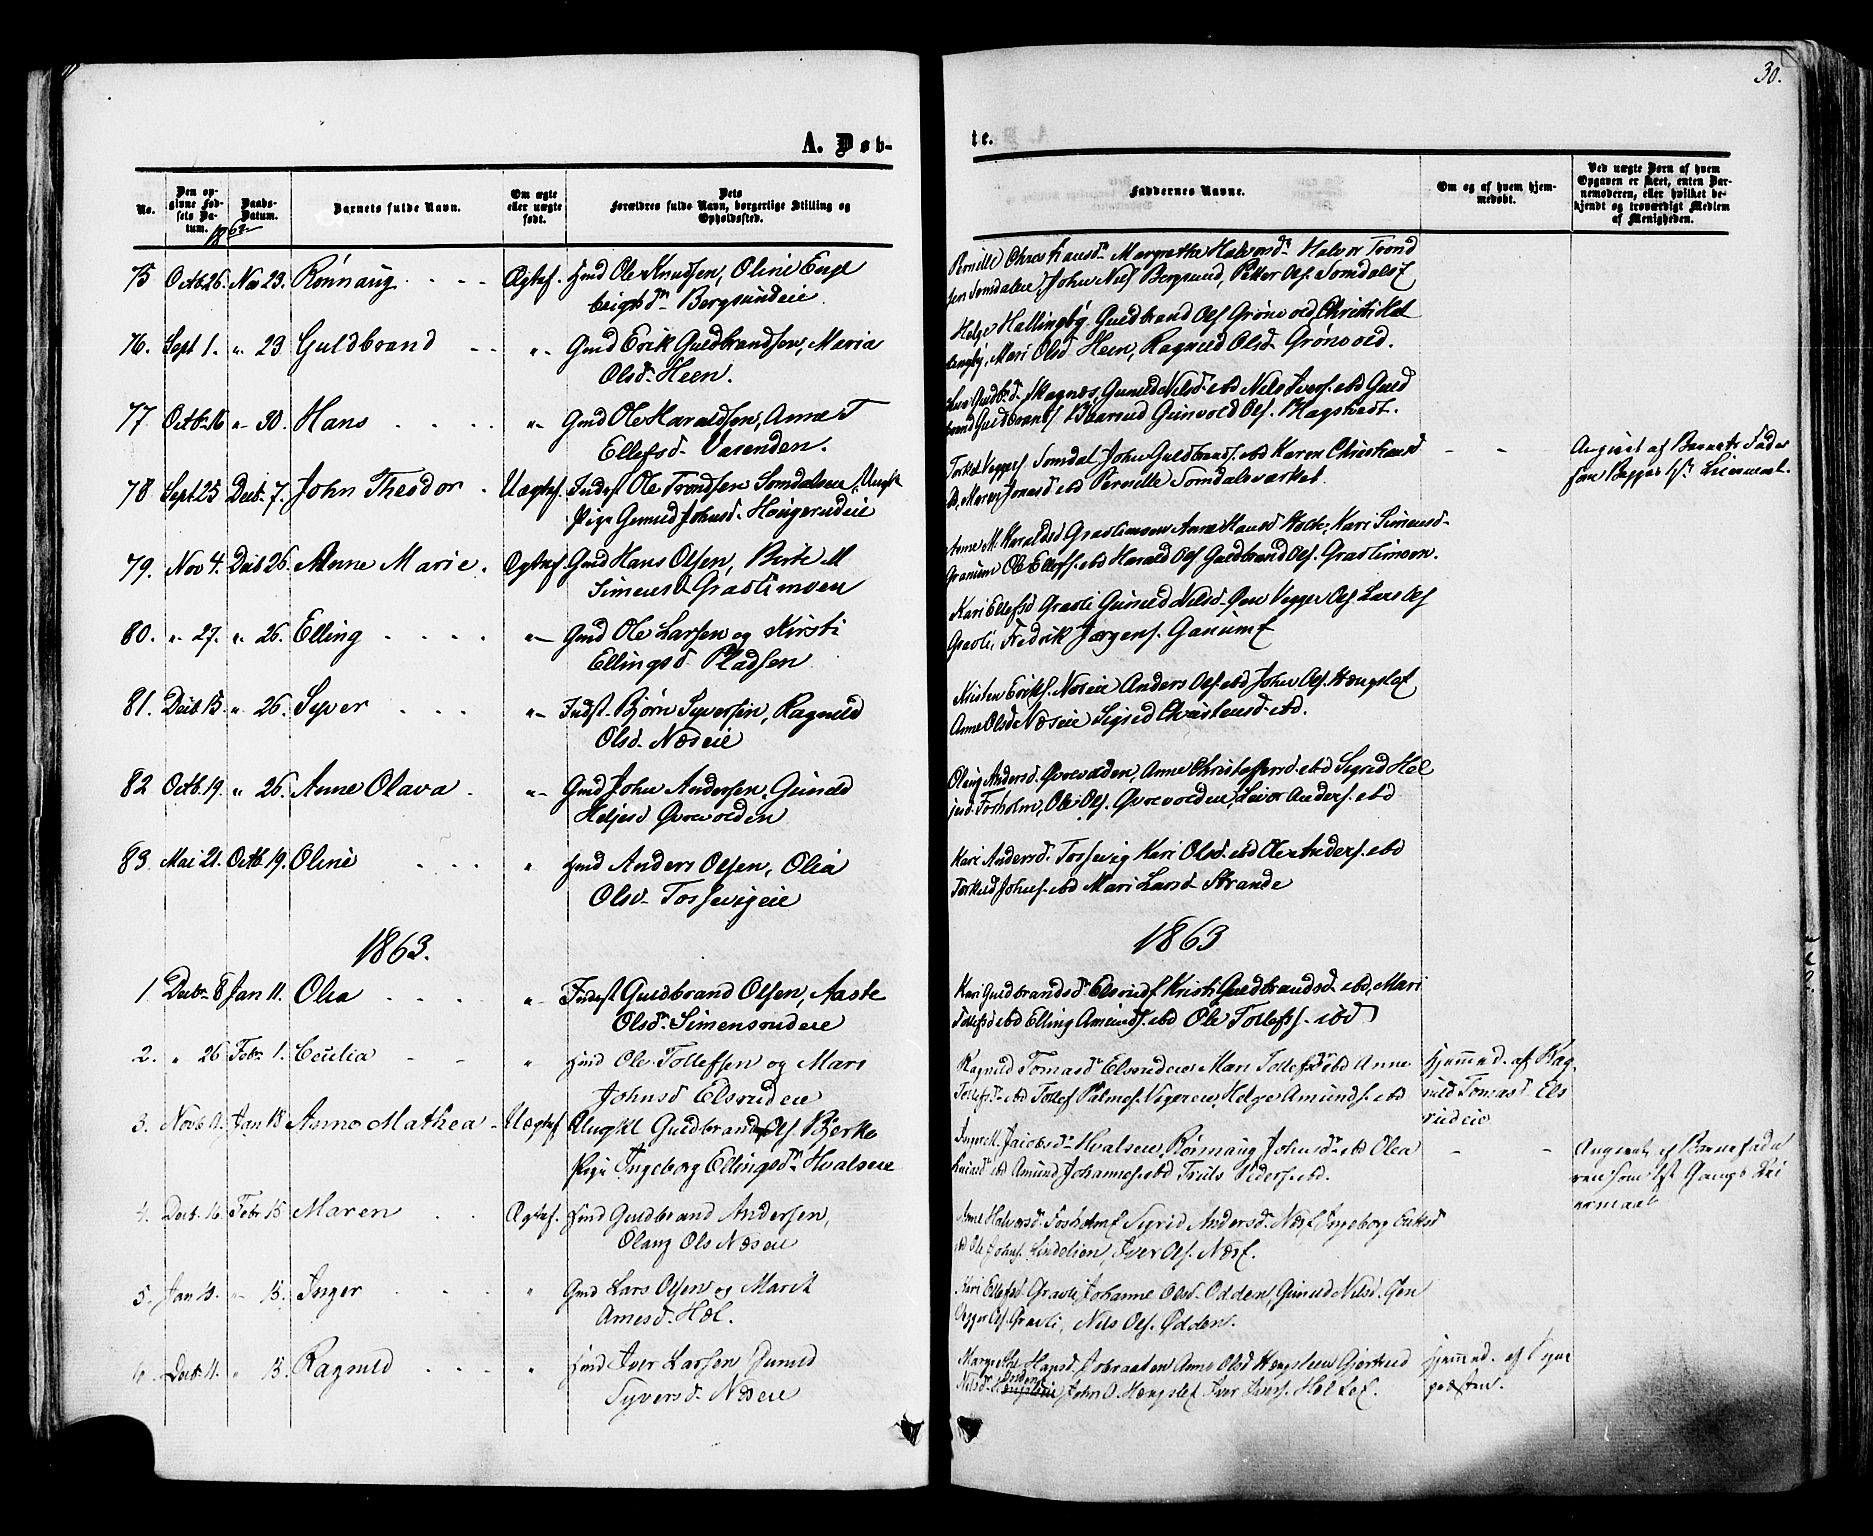 30.
A. Døb-
te.
No.
Den op-
givne Fød-
sels Da-
tum.
1862
Daabs-
Datum.
Barnets fulde Navn.
Om ægte
eller uægte
født.
Dets
Forældres fulde Navn, borgerlige Stilling og
Opholdssted.
Faddernes Navne.
Om og af hvem hjem-
medøbt.
Ved uægte Børn af hvem
Opgaven er skeet, enten Bar-
nemoderen, eller hvilket be-
kjendt og troværdigt Medlem
af Menigheden.
75 Octb. 26. Nov 23. Rönnaug Ægtef. Hmd Ole Knudsen, Oline Engl
beigsdr Bergsundeie
Pernille Christiansdr Margrethe Halvorsdr Halvor Trond
sen Somdalen, John Nils. Bergsund, Petter Ols. Somdals
76. Sept 1. " 23 Guldbrand "- Gmd Erik Guldbrandsen, Maria
Olsd. Heen.
Helge Hallingby Guldbrand Ols Grönvold, Christi Hal
lingby, Mari Olsd Heen, Ragnild Olsd Grønvold.
77 Octbr 16 " 30. Hans "- Gmd Ole Haraldsen, Anne T
Ellefsd. Vasenden.
Gudbr.d. Skagnæs, Gunild Nilsd. ibd Nils Ivers. ibd Guld
brand Guldbrands Gunvold Ols. Hagstedt.
78 Sept. 25 Decb. 7. John Theodor Uægtef. Indst Ole Trondsen Somdalen, Ungk
Pige Gunild Johnsd. Haugerudeie
Torkel Veggers Somdal John Guldbrands. ibd Karen Christiansd
Maren Jonasd ibd Pernille Somdalsværket.
Angivet af Barnets Fader
som Begges 1st Leiermaal.
79. Nov 4. Decb 26. Anne Marie. Ægtef. Gmd Hans Olsen, Berte M
Simensd Graslimoen
Anne M. Haraldsd Graslimoen Anne Hansd Kari Simensd.
Granum Ole Ellefs. ibd Harald Ols Guldbrand Ols. Graslimoen.
80. " 27. " 26. Elling "- Gmd Ole Larsen og Kirsti
Ellingsd Pladsen
Kari Ellefsd Gravli Gunild Nilsd. Gen Vegger Ols. Lars Ols
Gravli, Fredrik Jørgens.
81. Decb 15. " 26. Syver "- Indst. Bjørn Syversen, Ragnild
Olsd. Næseie
Kristen Eriks. Næseie Anders Ols. ibd John Ols. Hængsle
Anne Olsd Næseie Sigrid Christensd. ibd.
82 Octb. 19. " 26. Anne Olava "- Gmd John Andersen, Gunild
Heljesd Qvævolden
Olaug Andersd. Qvævolden, Anne Christoffersd. ibd Sigrid Hel
jesd. Forsholm, Ole Ols. Qvævolden, Anders. ibd
83. Mai 21. Octb. 19. Oline " Hmd Anders Olsen, Olia
Olsd. Tossevigeie
Kari Andersd. Tossevig Kari Olsd. ibd Ole Anders. ibd
Torkild Johns. ibd Mari Larsd Strande
1863.
1863
1 Decbr 8 Jan 11. Olea "- Indst Guldbrand Olsen, Aaste
Olsdr Simensrudeie
Kari Guldbrandsdr Elsrud Kristi Guldbrandsd. ibd, Mari
Tollefsd ibd Elling Amunds. ibd Ole Tollefs. ibd
2. " 26 Febr. 1. Cecilia " Hmd Ole Tollefsen og Mari
Johnsd Elsrudeie
Ragnild Tomasdr Elsrudeie Mari Tollefsd ibd Anne
Tollefsd. ibd Tollef Palmes. Vigereie, Helge Amunds. ibd
Hjemmed. af Rag
nild Tomasd Els
rudeie
3. Novb 9. Jan 18 Anne Mathea Uægtef. Ungkl Guldbrand Ols. Bjerke
Pige Ingeborg Ellingsdr Hvalseie
Inger M. Jacobsdr Hvalseie, Rønnaug Johnsd. ibd Olea
ibd Amund Johannes. ibd Truls Peders. ibd.
Angivet af Barnefade
ren som 1st Gangs Lei
ermaal
4. Decb. 16. Febr 15 Maren Ægtef. Hmd Guldbrand Andersen,
Olaug Ols Næseie
Anne Halvorsd. Fosholm Sigrid Andersd. Næs Ingeborg Eriksd
ibd Ole Johns. Lindelien, Iver Ols. Næs
5. Jan 13. " 15. Inger " Gmd Lars Olsen og Marit
Arnesd. Hæl.
Kari Ellefsd. Gravli, Johanne Olsd. Odden, Gunild Nilsd. Gen
Vegger Ols. Gravli, Nils Ols. Ødden.
6. Decb. 11. " 15. Ragnild " Hmd Iver Larsen Gunild
Syversd. Næseie
Margrethe Hansd. Anne Olsd Hængsleen Gjertrud
Nilsd. John O. Hængsle, Iver Ivers. Hælle
Hjemmed. af Sogne
præsten.